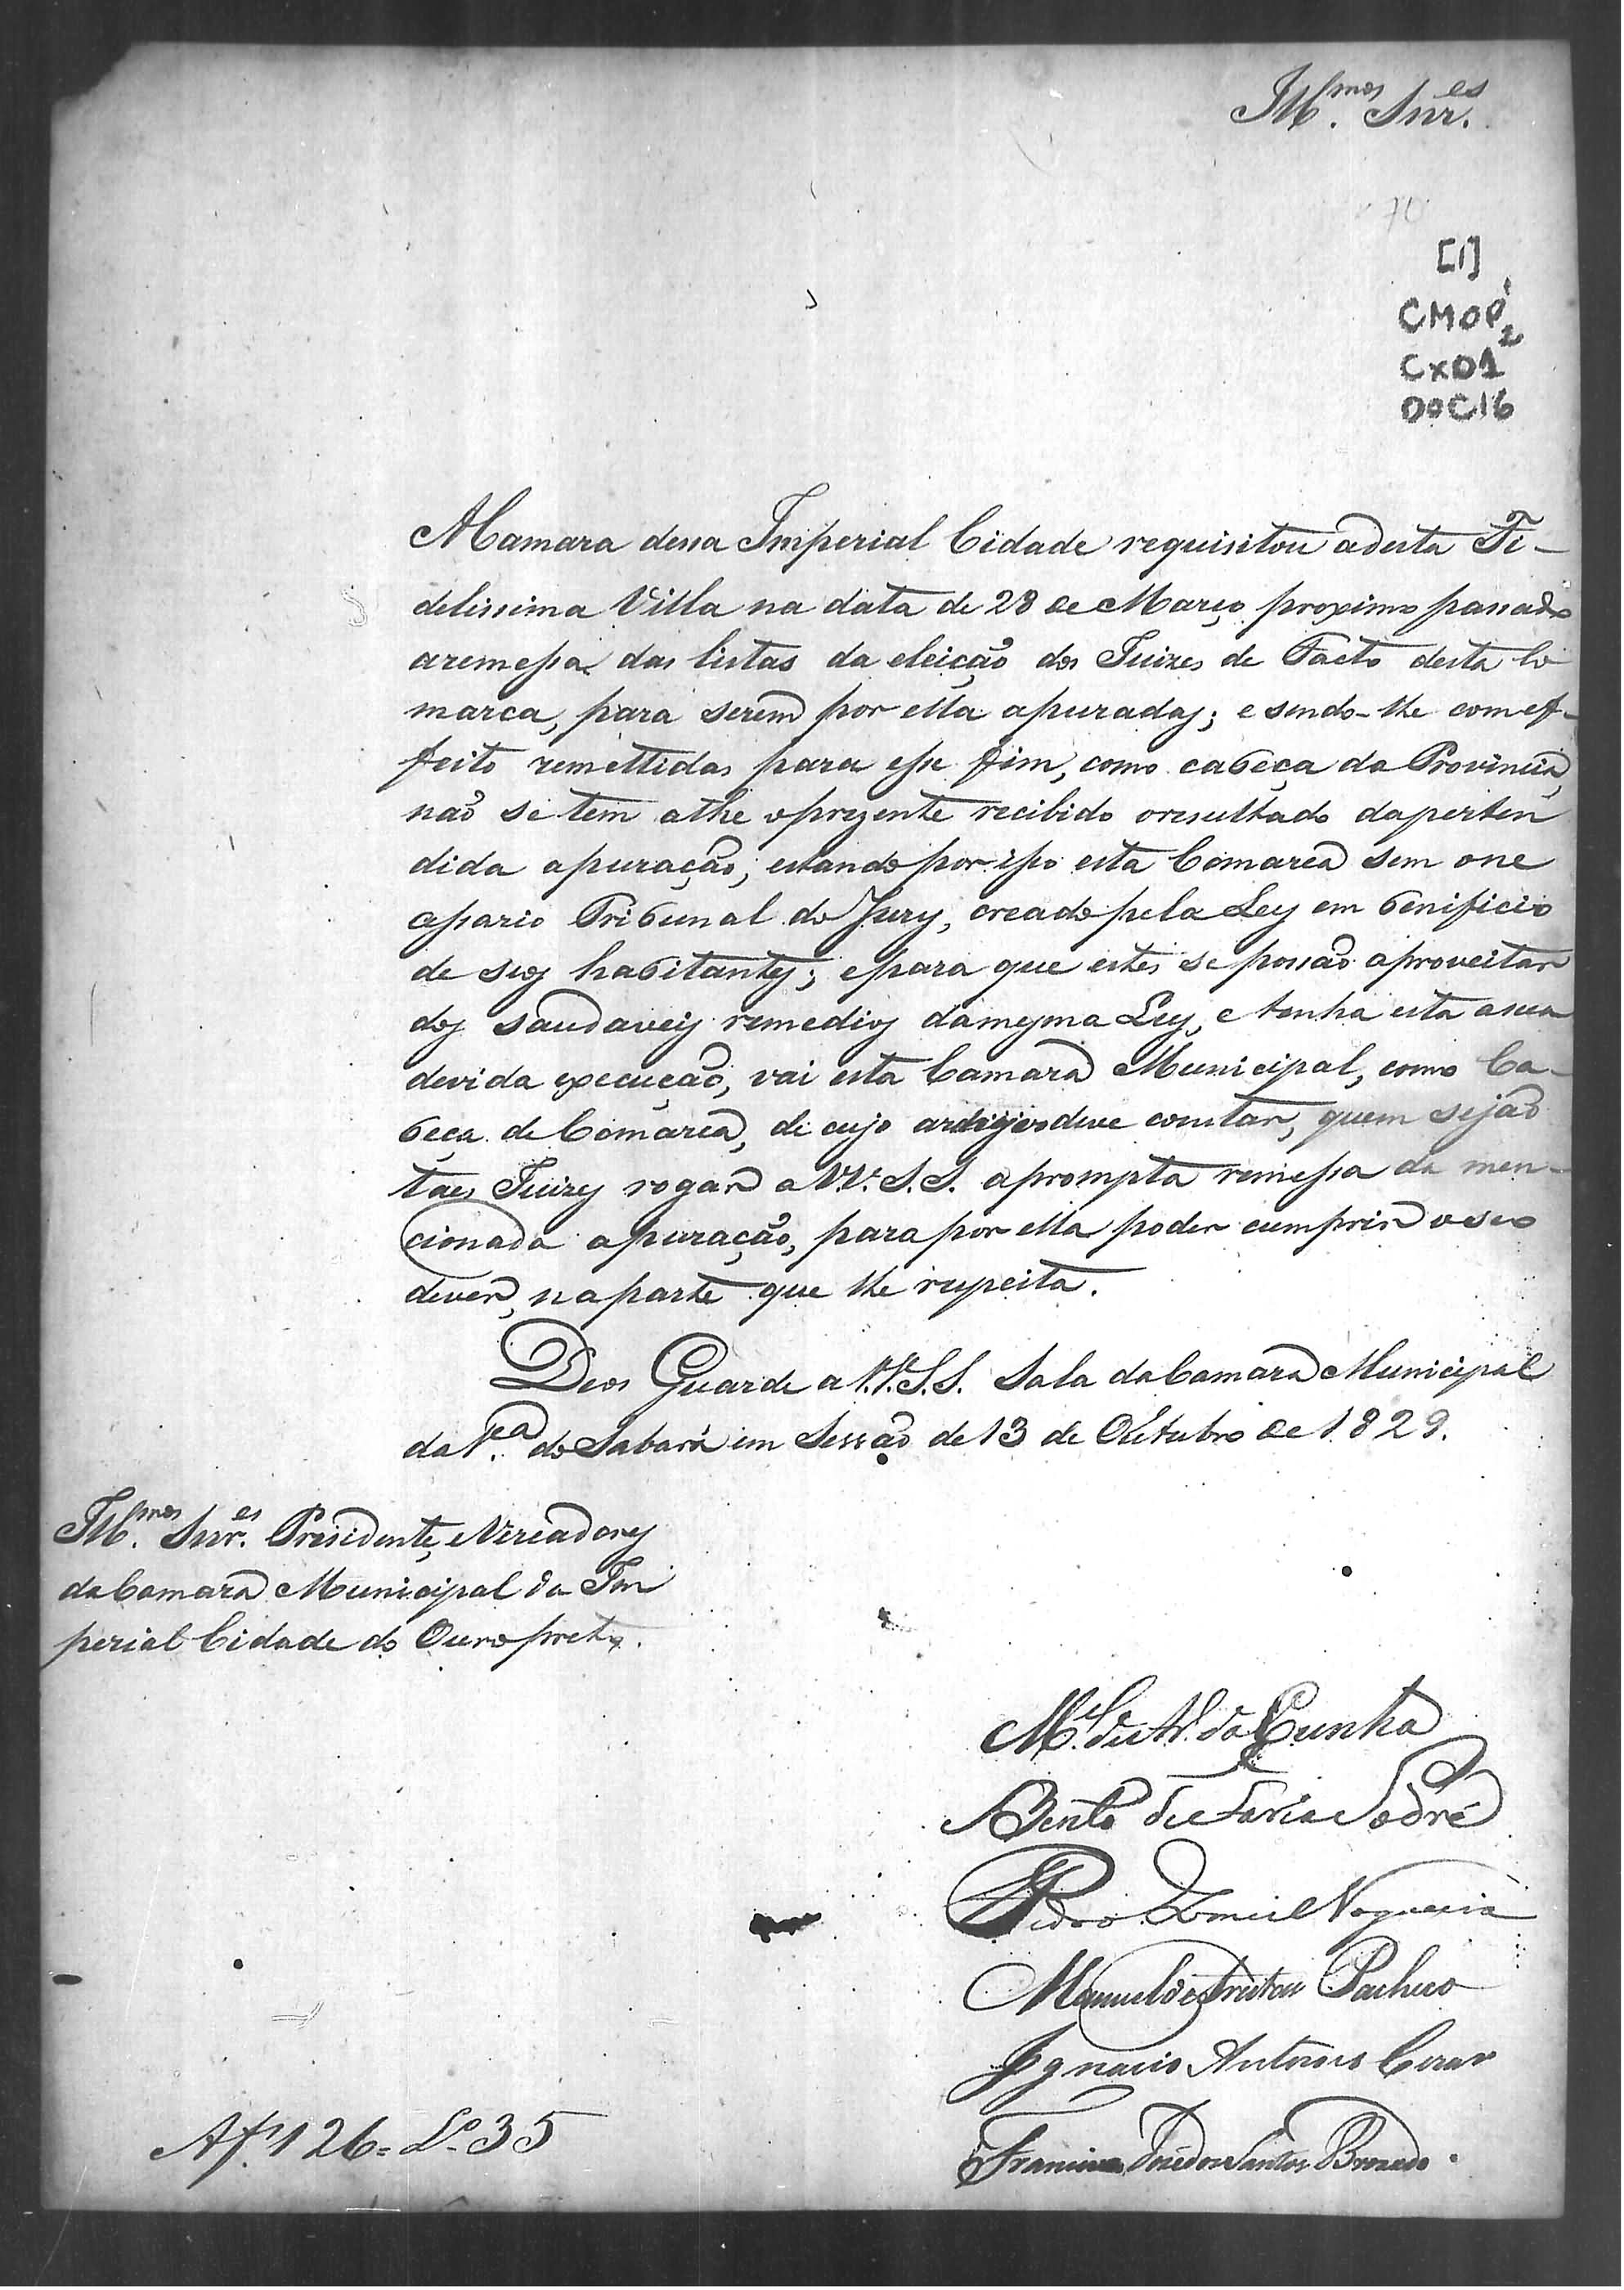 Illmos. Snres.
70
[1]
CMOP
2
Cx01
DOC16
A Camara dessa Imperial Cidade requisitou a desta Fi-
delissima Villa na data de 28 de Março proximo passado
aremessa das listas da eleição dos Juizes de Facto desta Co
marca, para serem por ella apuradas; e sendo-lhe com ef-
feito remettidas para esse fim, como cabeça da Provincia,
não se tem athe oprezente recibido oresultado daperten
dida apuração; estando por isso esta Comarca sem one
cessario Tribunal do Jury, creado pela Ley em benificio
de seos habitantes; epara que estes se possão aproveitar
dos saudaveis remedios damesma Ley, e tenha esta asua
devida execução, vai esta Camara Municipal, como Ca-
beça de Comarca, de cujo deve constar, quem sejão
taes Juizes rogar a V.V. S.S. aprompta remessa da men-
cionada apuração, para por ella poder cumprir oseo
dever, naparte que lhe respeita.
Deos Guarde a V.V. S.S. Sala da Camara Municipal
da Va. do Sabará em Sessão de 13 de Outubro de 1829.
Illmos. Snres. Presidente, e Vereadores
da Camara Municipal da Im
perial Cidade do Ouro preto.
Mel. de da Cunha
Bento de Faria Sodré
Pedro Gomes Nogueira
Manuel de Freitas Pacheco
Ignacio Antonio Cezar
Francisco José dos Santos Brochado.
Af. 126 = Lo. 35